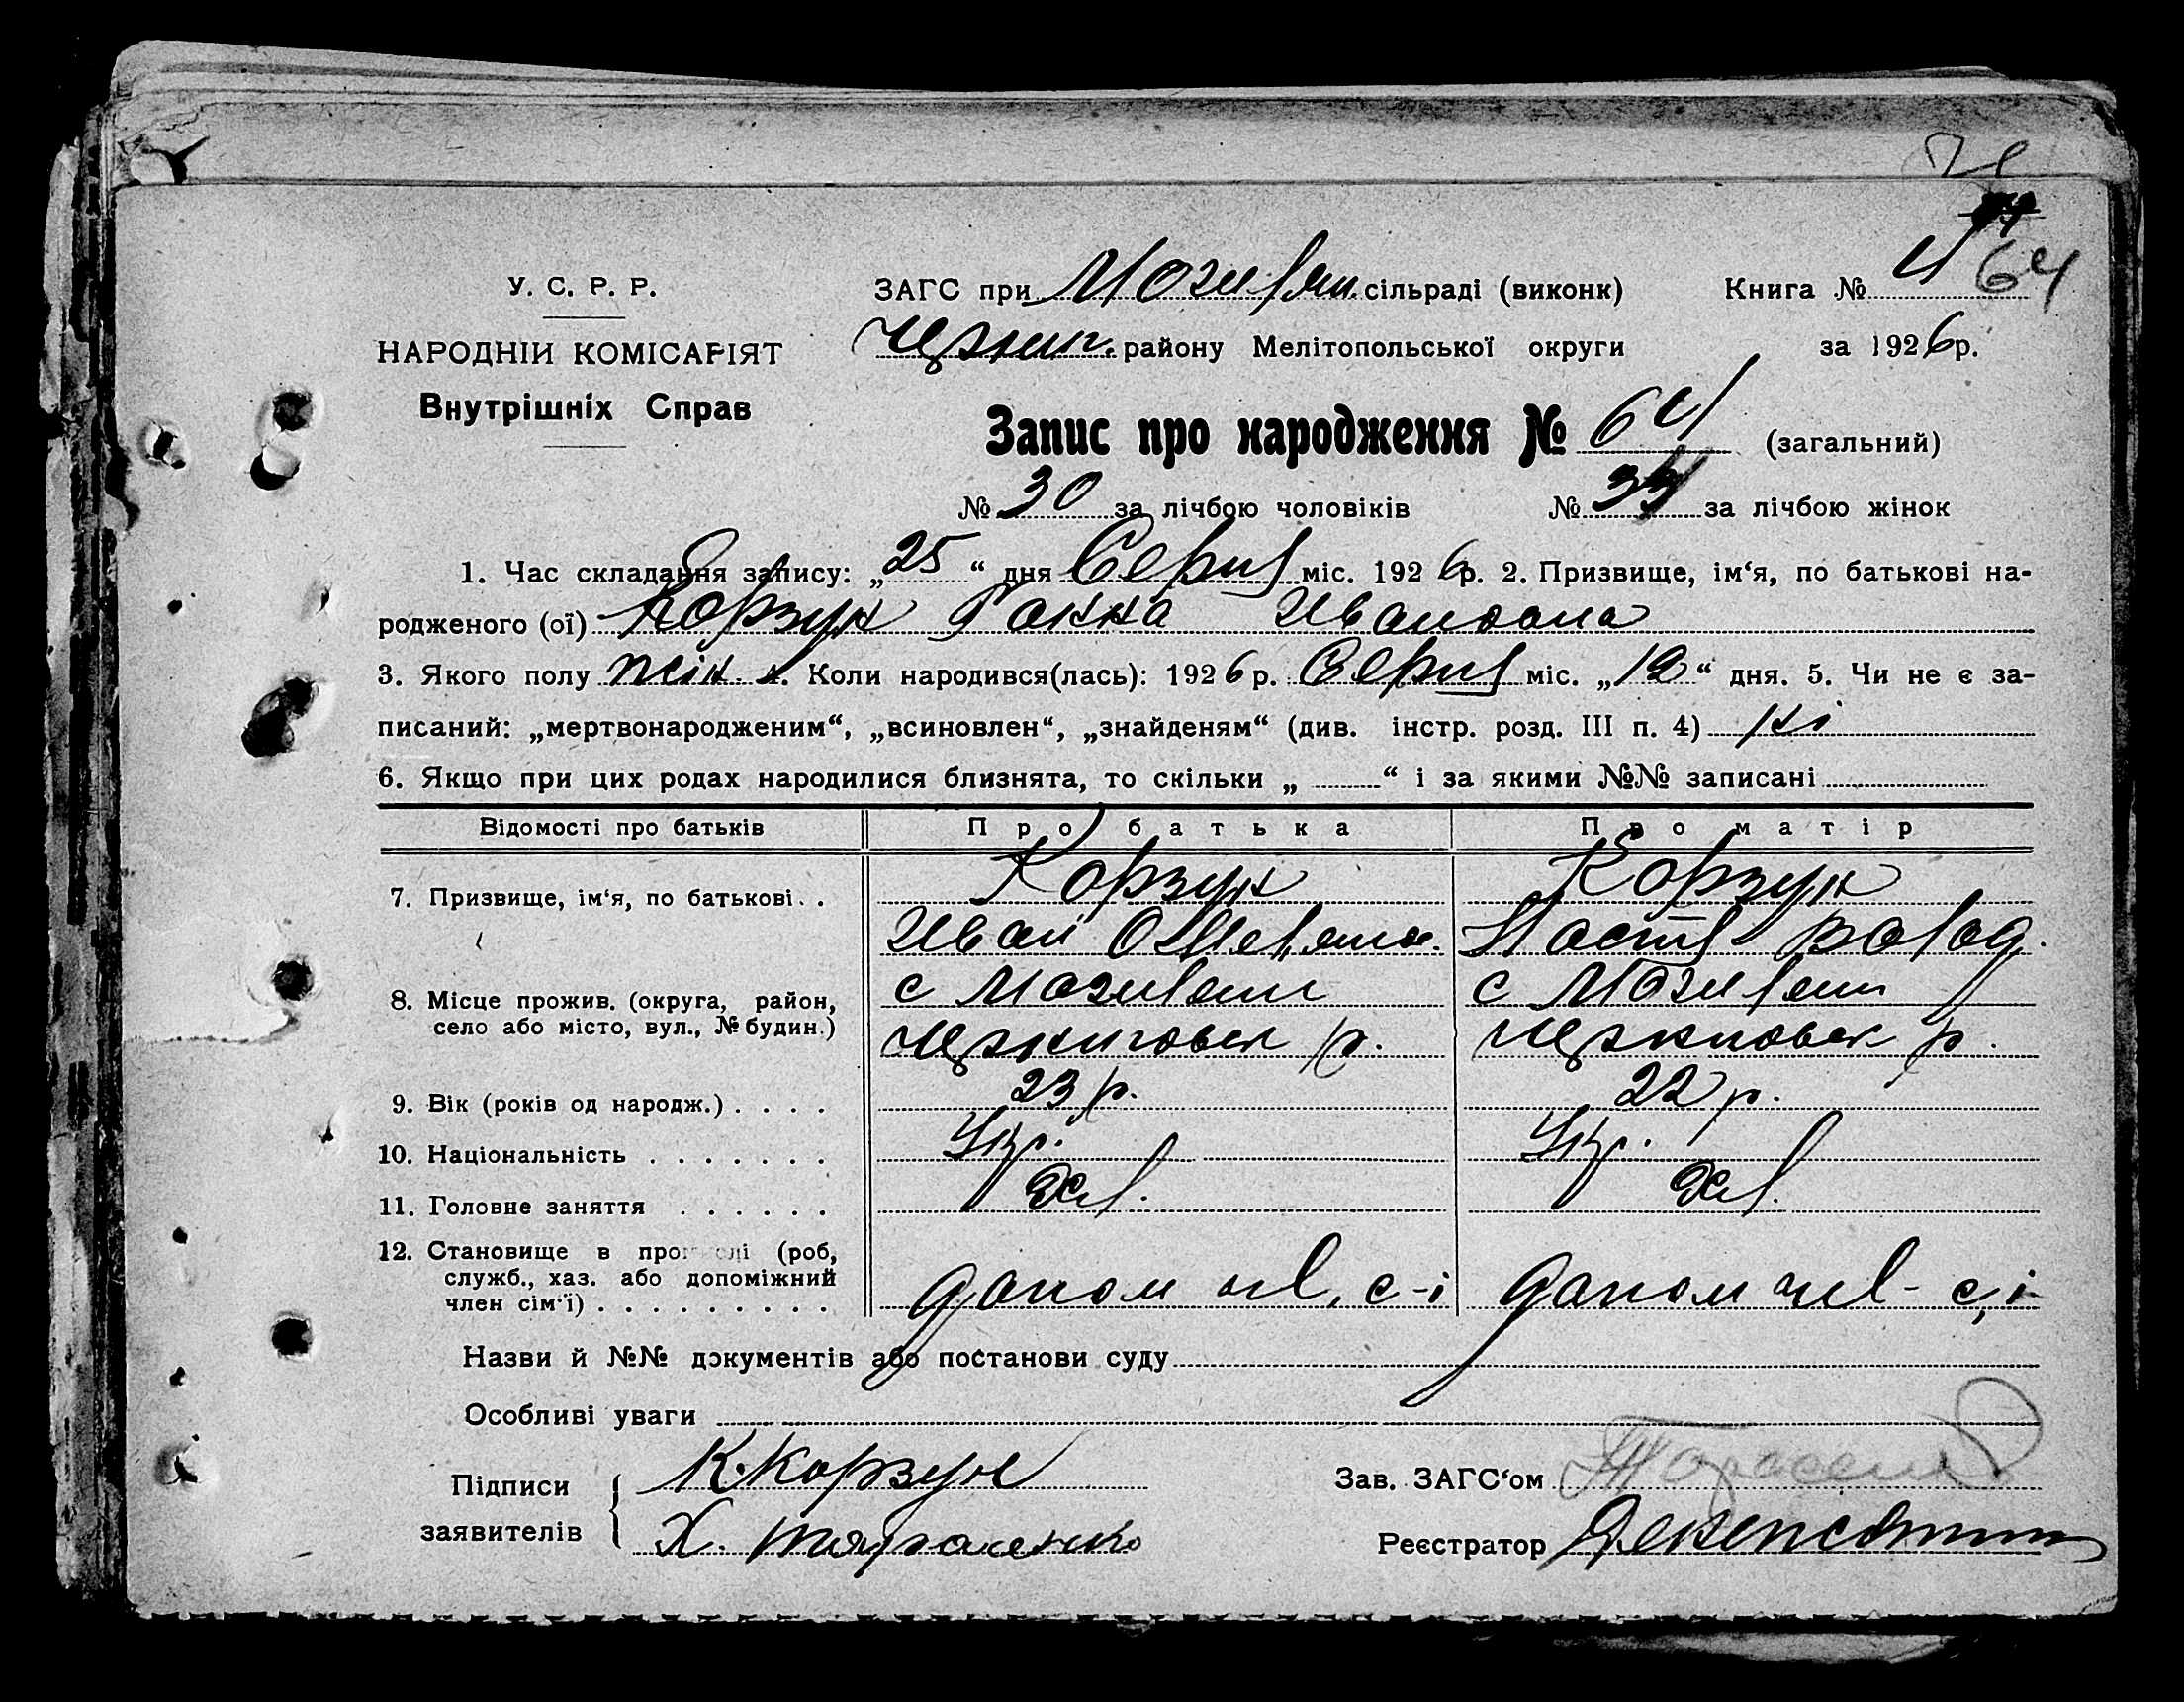 64
У. С. Р. Р.
НАРОДНІЙ КОМІСАРІЯТ
Внутрішніх Справ
ЗАГС при сільраді (виконк) Книга №
району Мелітопольської округи за 1926 р.
Запис про народження № 64 (загальний)
№ 30 за лічбою чоловіків № за лічбою жінок
1. Час складання запису: „25“ дня Серпня міс. 1926 р. 2. Призвище, ім‘я, по батькові на-
родженого (ої) Корзун Ганна Ивановна
3. Якого полу жін. 4. Коли народився(лась): 1926 р. Серпня міс. „12“ дня. 5. Чи не є за-
писаний: „мертвонародженим“, „всиновлен“, „знайденям“ (див. інстр. розд. III п. 4) ні
6. Якщо при цих родах народилися близнята, то скільки „ “ і за якими №№ записані
Відомості про батьків Про батька Про матір
7. Призвище, ім‘я, по батькові. . Корзун Корзун
Иван Настя Волод.
8. Місце прожив. (округа, район, с с
село або місто, вул., № будин.) р. р.
9. Вік (років од народж.) . . . . 23 р. 22 р.
10. Національність . . . . . . . Укр. Укр.
11. Головне заняття . . . . . . Хл. Хл.
12. Становище в промислі (роб,
служб., хаз. або допоміжний
член сім‘ї) . . . . . . . . . допом чл. с-і допом чл- с-і
Назви й №№ документів або постанови суду
Особливі уваги
Підписи К. Корзун Зав. ЗАГС‘ом
заявителів Х. Реєстратор